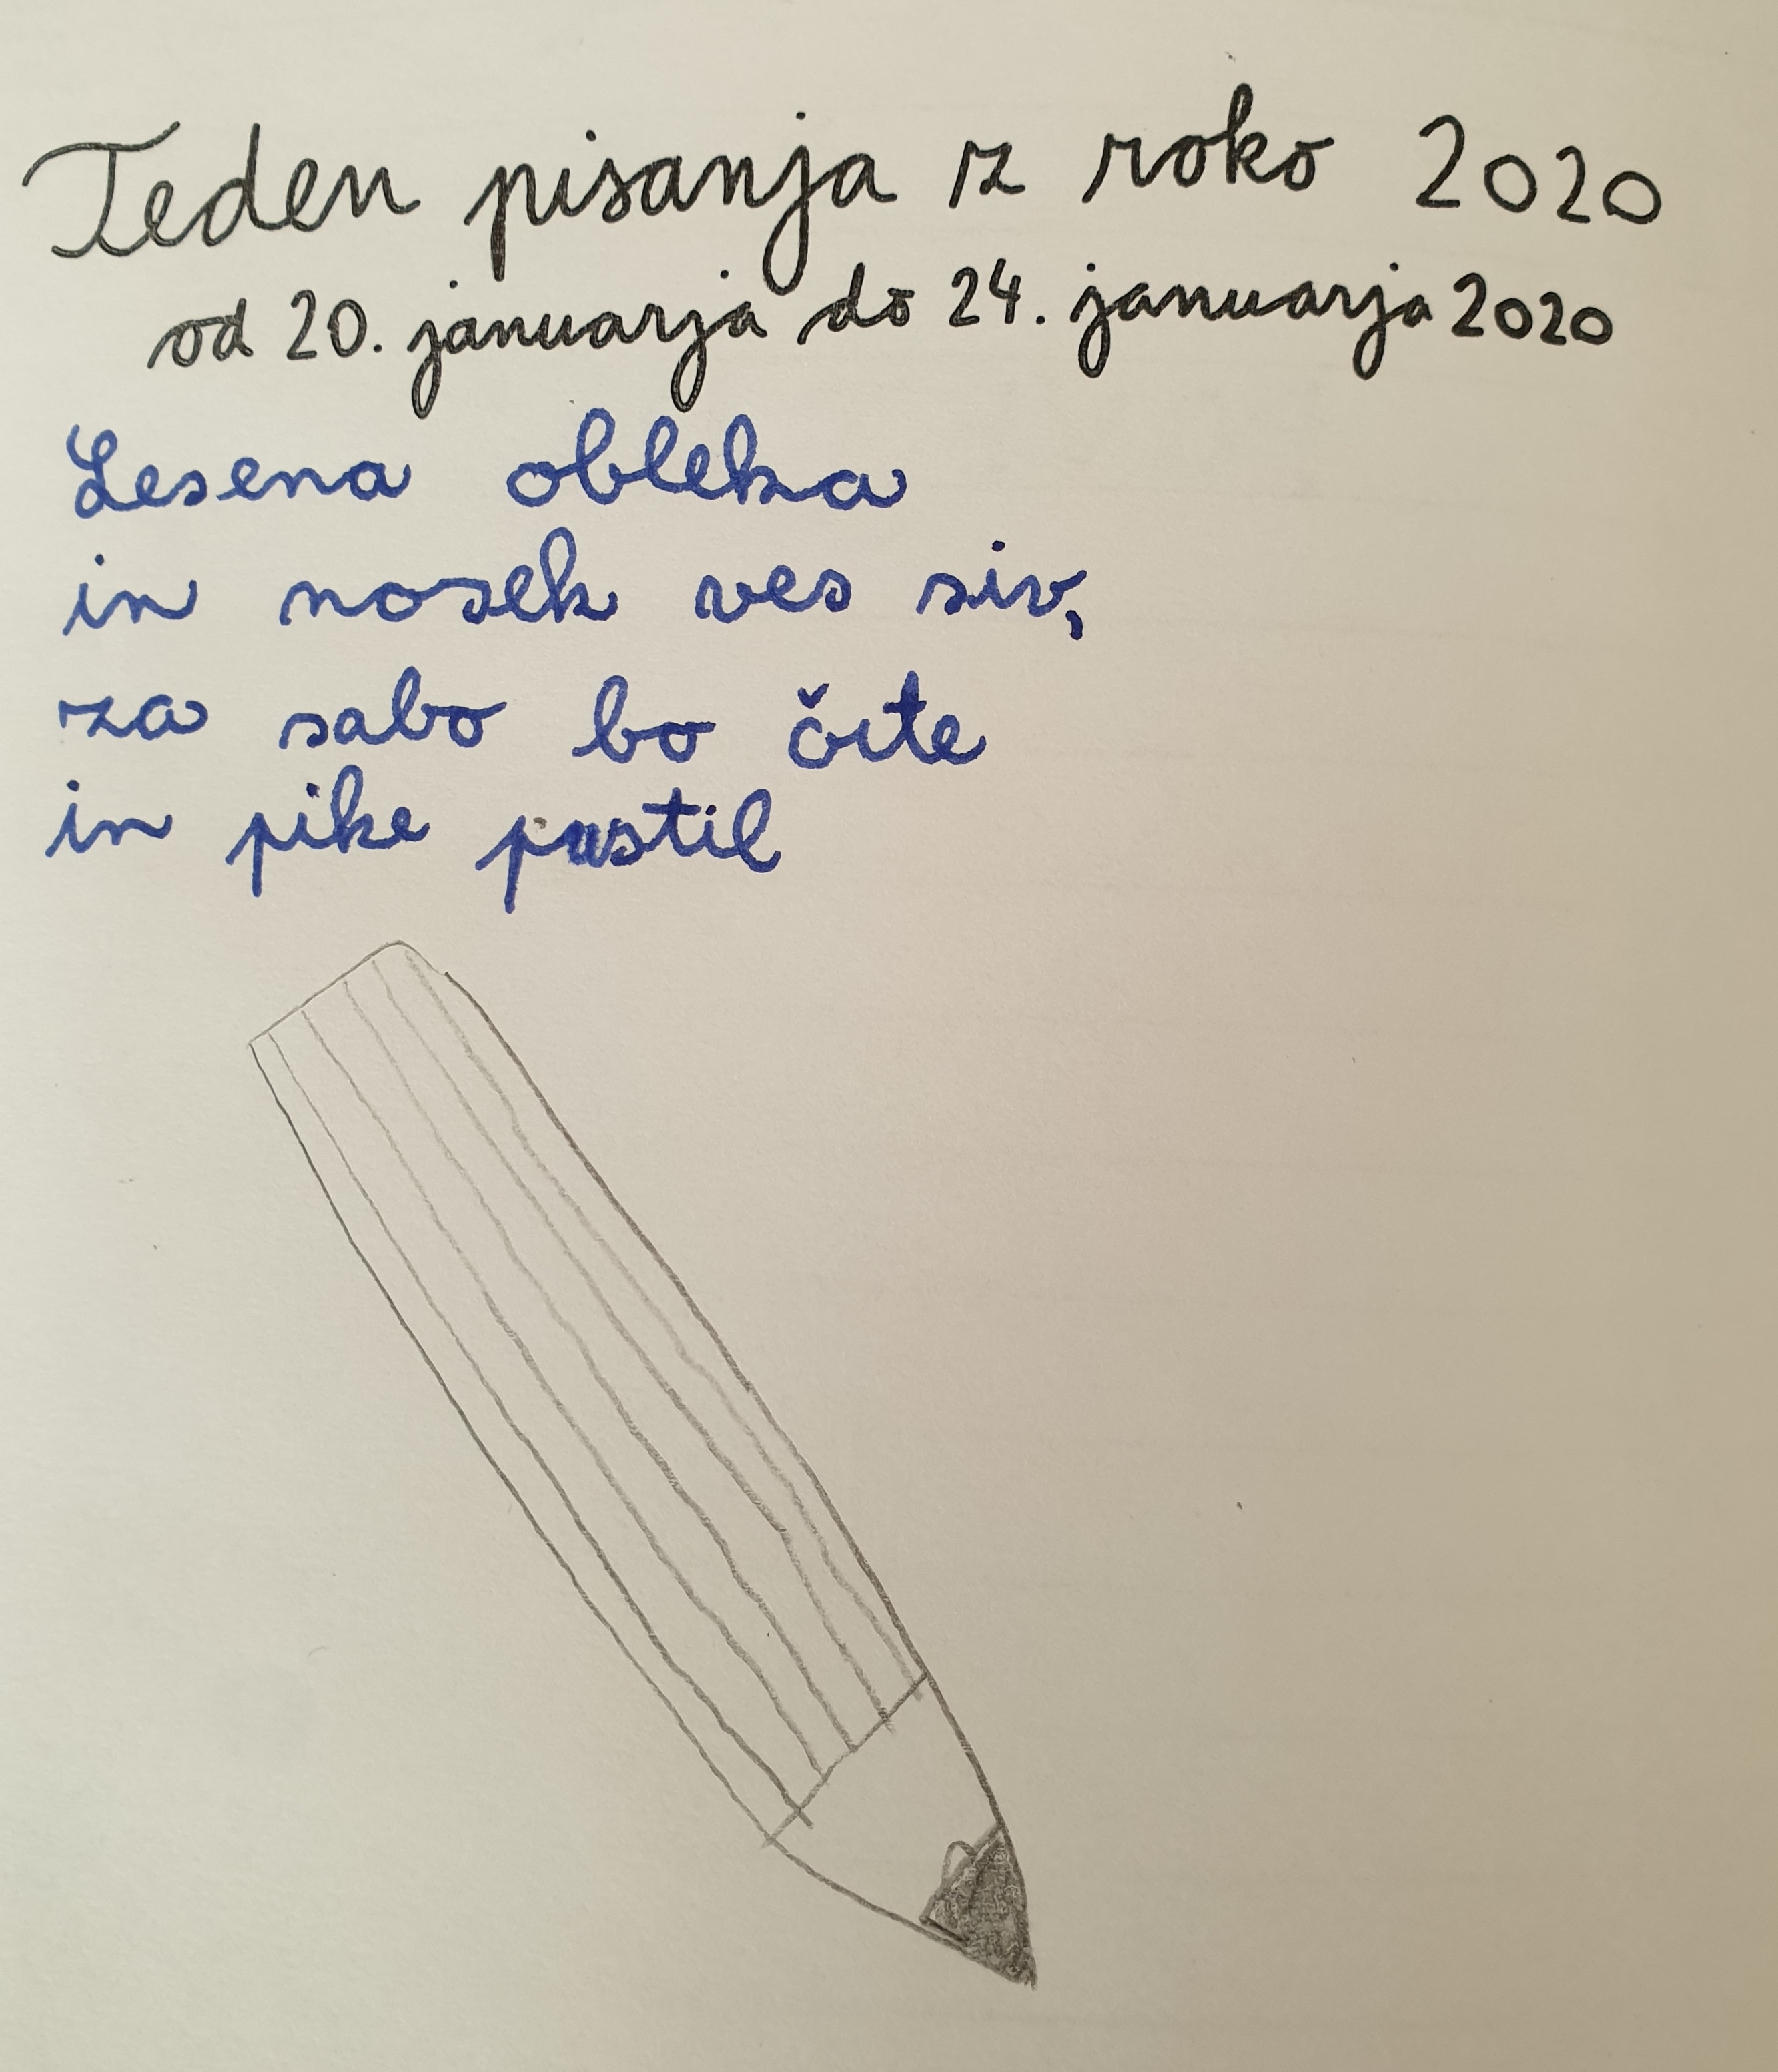 Teden pisanja z roko 2020
od 20. januarja do 24. januarja 2020
Lesena obleka
in nosek ves siv,
za sabo bo črte
in pike pustil